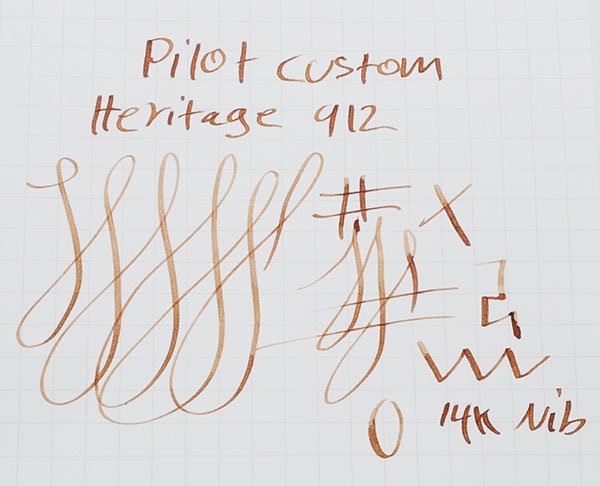 Pilot Custom
Heritage 912
14K Nib